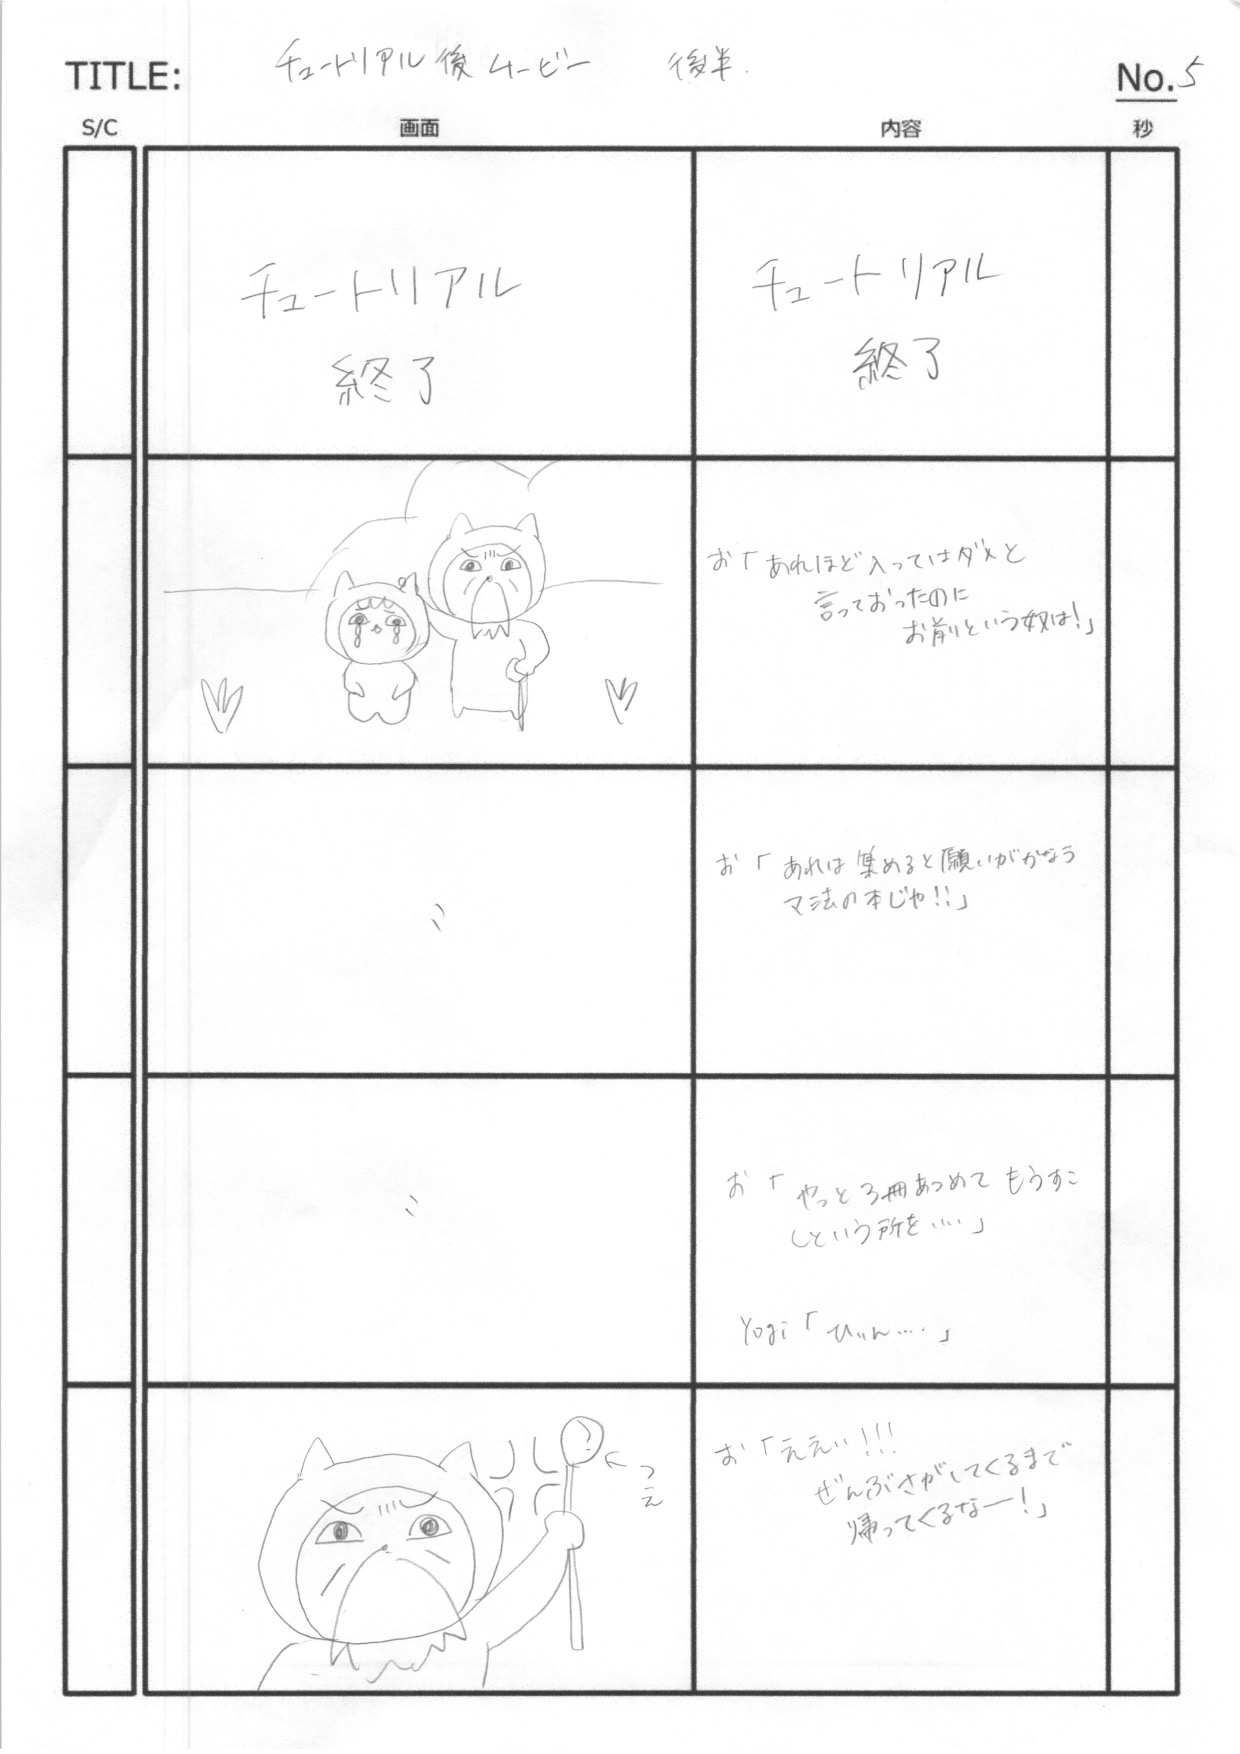 TITLE: チュートリアル後ムービー 後半. No.5
S/C 画面 内容 秒
チュートリアル
終了
チュートリアル
終了
お「あれほど入ってはダメと
言っておったのに
お前という奴は!」
お「あれは集めると願いがかなう
マ法の本じゃ!!」
お「やっと3冊あつめてもうすこ
しという所を....」
Yogi「ひぃん....」
←つ
え
お「ええい!!!
ぜんぶさがしてくるまで
帰ってくるなー!」